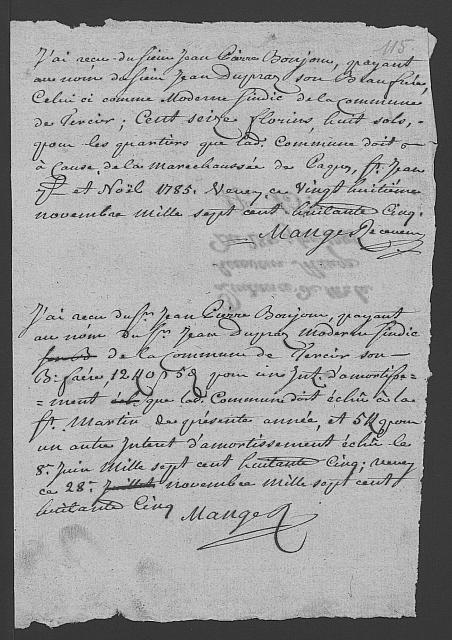 115.
J'ai reçu du sieur Jean Pierre Boujour, payant
au nom du sieur Jean Dupraz son Beaufrére,
Celui ci comme Moderne sindic de la Commune
de Vercir; Cent seize florins huit sols,
pour les quartiers que lad. Commune doit
à Cause de la Marechaussée de Paques, St. Jean
et Noël 1785. Vevey, ce Vingt huitième
novembre Mille sept cent huitante Cinq.
Manget Receveur
J'ai reçu du Sr. Jean Pierre Boujour, payant
au nom du Sr. Jean Dupraz Moderne sindic
de la Commune de Vercir son
B: frére, pour un Int. d'amortisse=
=ment que lad. Commune doit échû à la
St. Martin de présente année, et pour
un autre Interet d'amortissement échû le
8e. Juin Mille sept cent huitante Cinq; vevey
ce 28e. Juillet novembre Mille sept cent
huitante Cinq
Manget